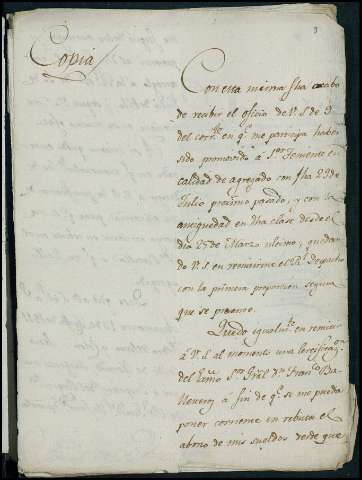 3
Copia
Con esta misma fha acabo
de recibir el oficio de V. S. de 9
del corr.te en q.e me participa haber
sido promovido á S.r Teniente en
calidad de agregado con fha 29 de
Julio proximo pasado, y con la
antiguedad en dha clase desde el
dia 25 de Marzo ultimo, quedan
do V. S. en remitirme el R.l Despacho
con la primera proporcion segura
que se presente.
Quedo igualm.te en remitir
á V. S. al momento una
del Exmo S.or Gral D.n Fran.co Ba
llesteros á fin de q.e se me pueda
poner corriente en el
abono de mis sueldos desde que